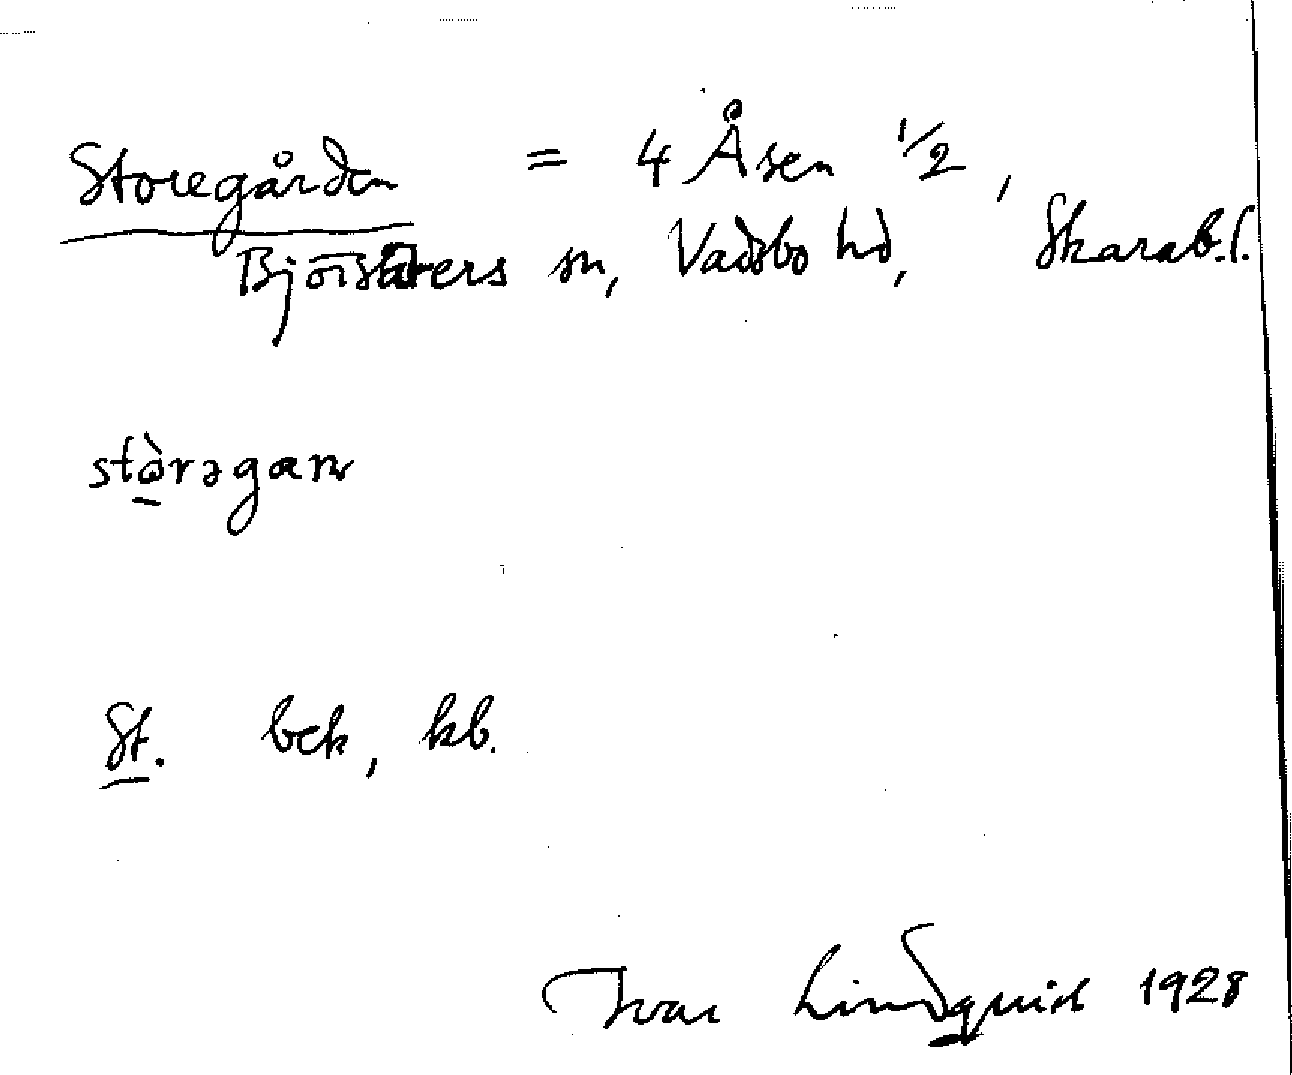 Storegården = 4 Åsen 1/2,
Björsäters sn, Vadsbo hd, Skarab. l.
stòrəgan
St. bek, kb.
Ivar Lindquist 1928